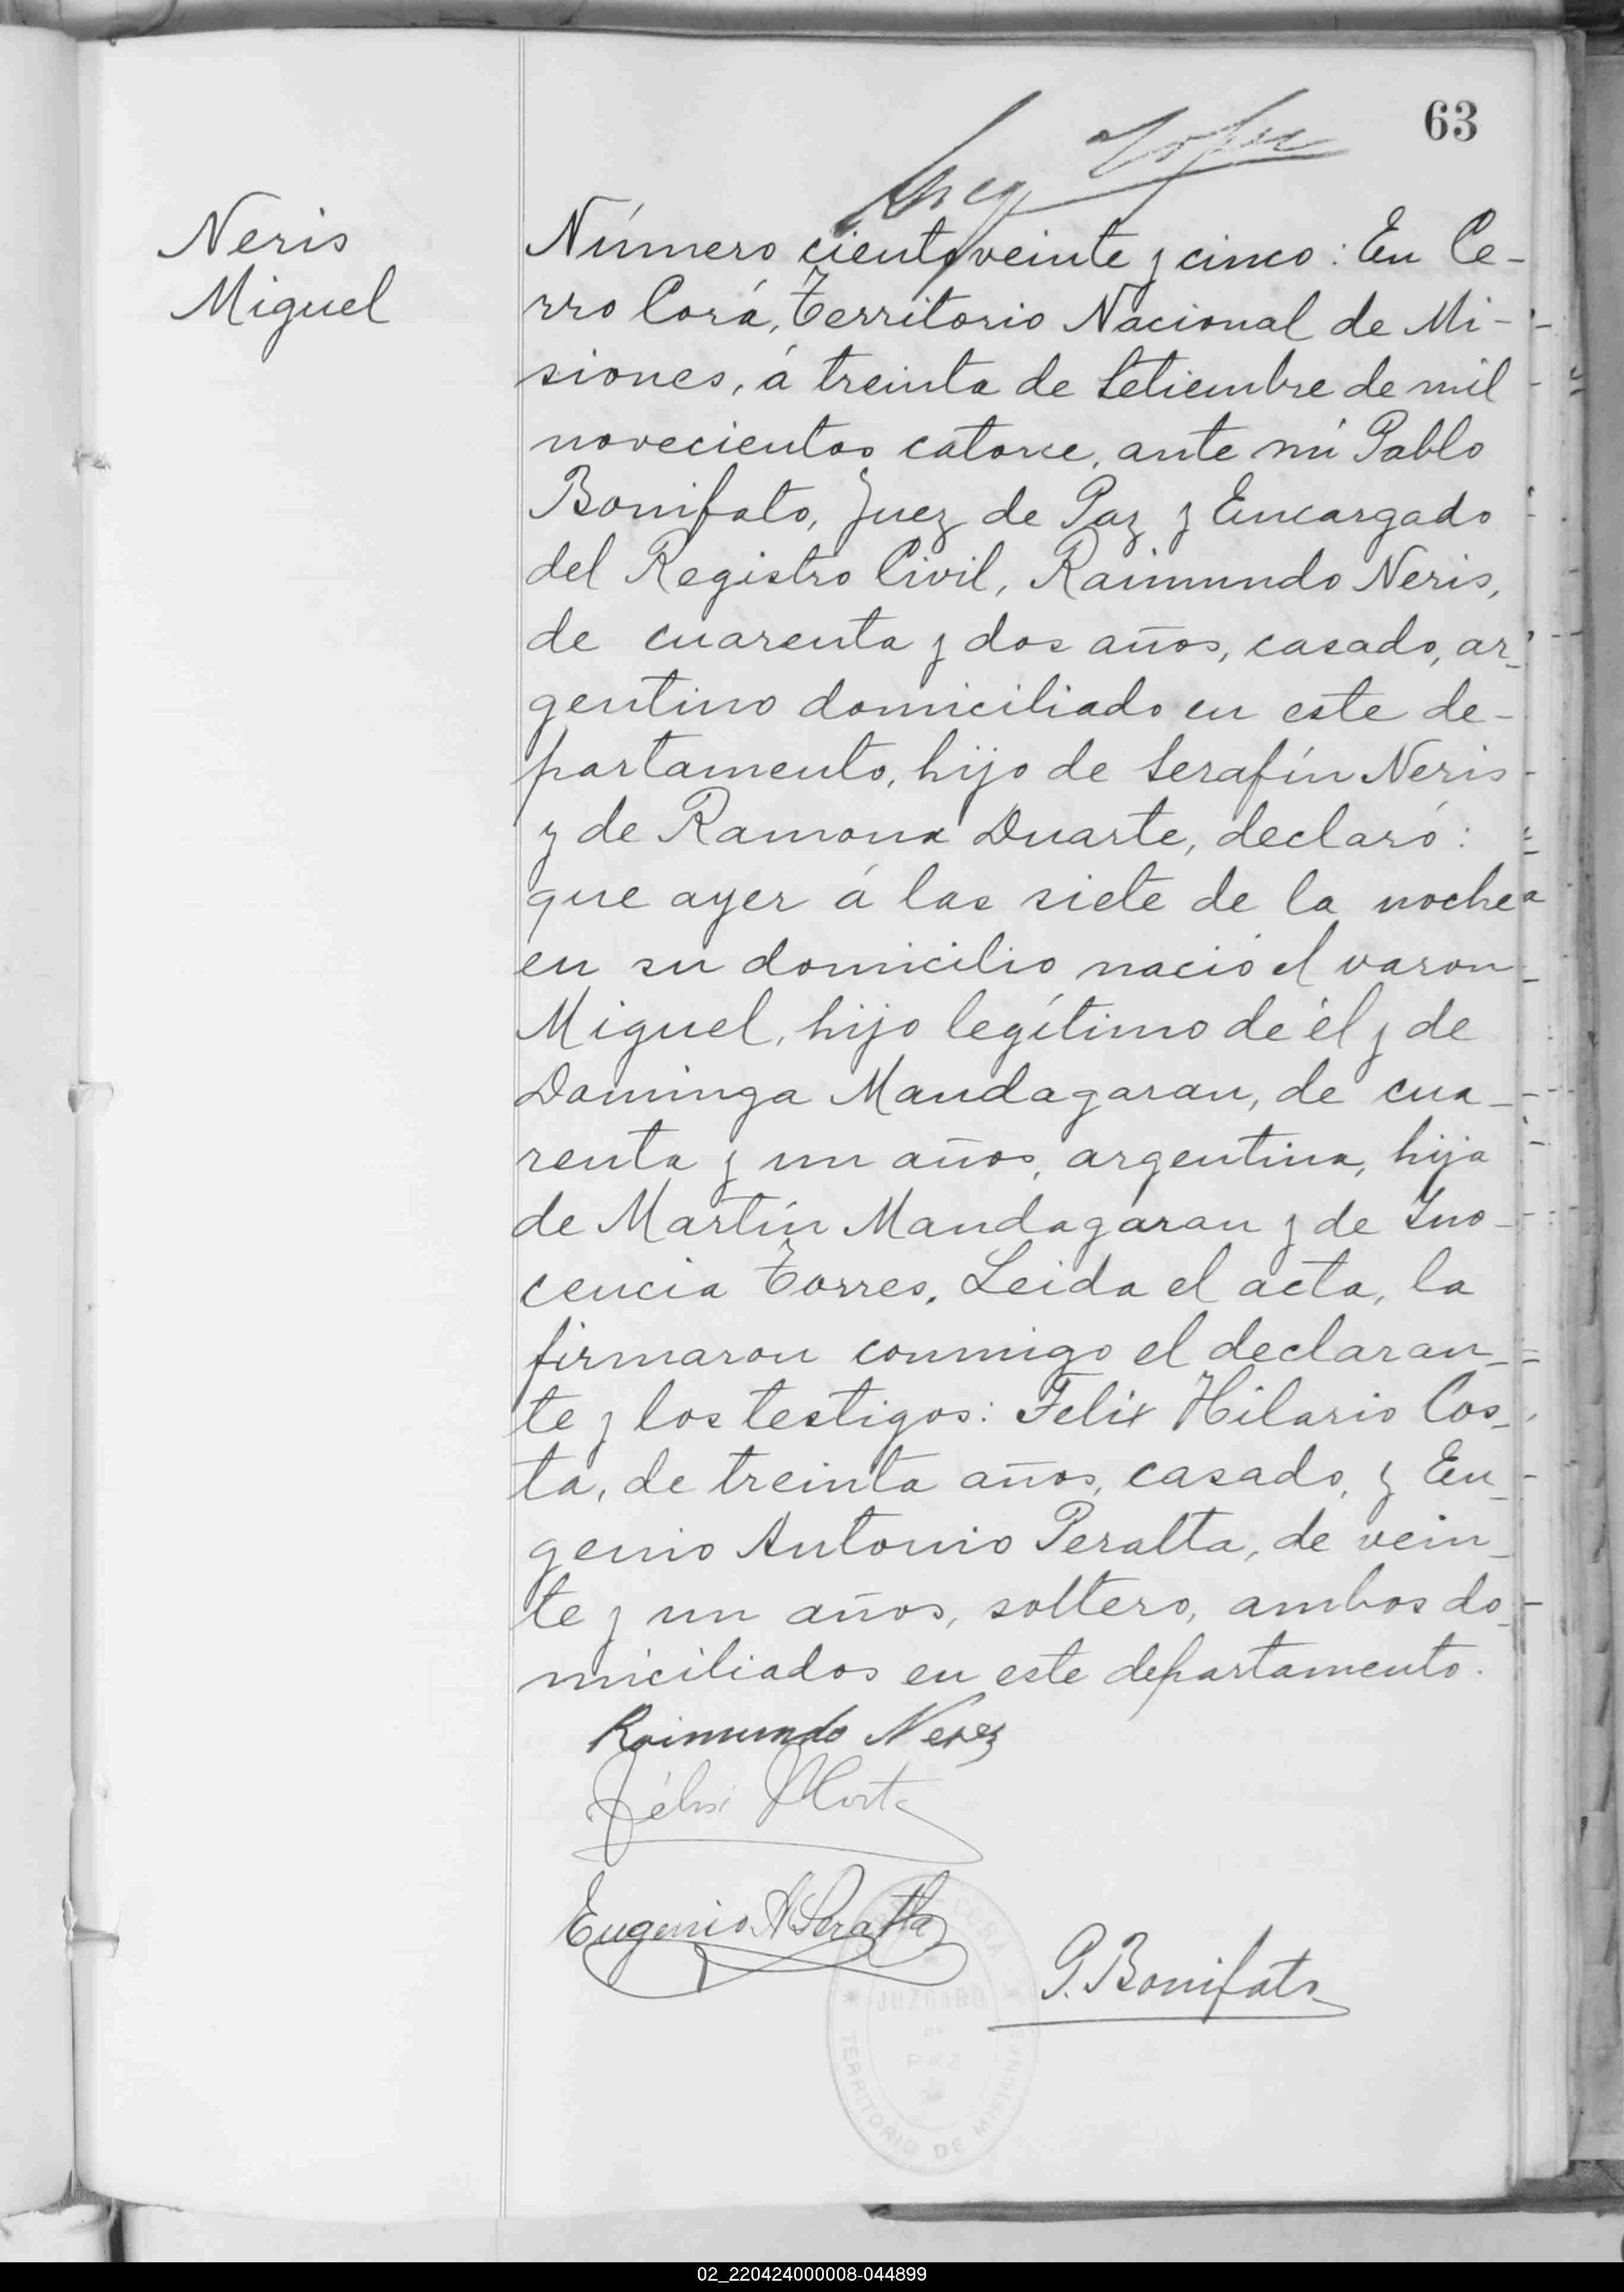 63
Neris
Miguel
Número ciento veinte y cinco: En Ce-
rro Corá, Territorio Nacional de Mi-
siones, á treinta de Setiembre de mil
novecientos catorce, ante mí Pablo
Bonifato, Juez de Paz y Encargado
del Registro Civil, Raimundo Neris,
de cuarenta y dos años, casado, ar-
gentino domiciliado en este de-
partamento, hijo de Serafín Neris
y de Ramona Duarte, declaró:
que ayer á las siete de la noche
en su domicilio nació el varon
Miguel, hijo legítimo de él y de
Dominga Mandagaran, de cua-
renta y un años, argentina, hija
de Martín Mandagaran y de Ino-
cencia Torres. Leida el acta, la
firmaron conmigo el declaran-
te y los testigos: Felix Hilario Cos-
ta, de treinta años, casado, y Eu-
genio Antonio Peralta, de vein-
te y un años, soltero, ambos do-
miciliados en este departamento.
Raimundo Nerez
Félix H Costa
Eugenio A Peralta
P. Bonifato
CORÁ
JUZGADO
DE
PAZ
TERRITORIO DE MISIONES
02_220424000008-044899